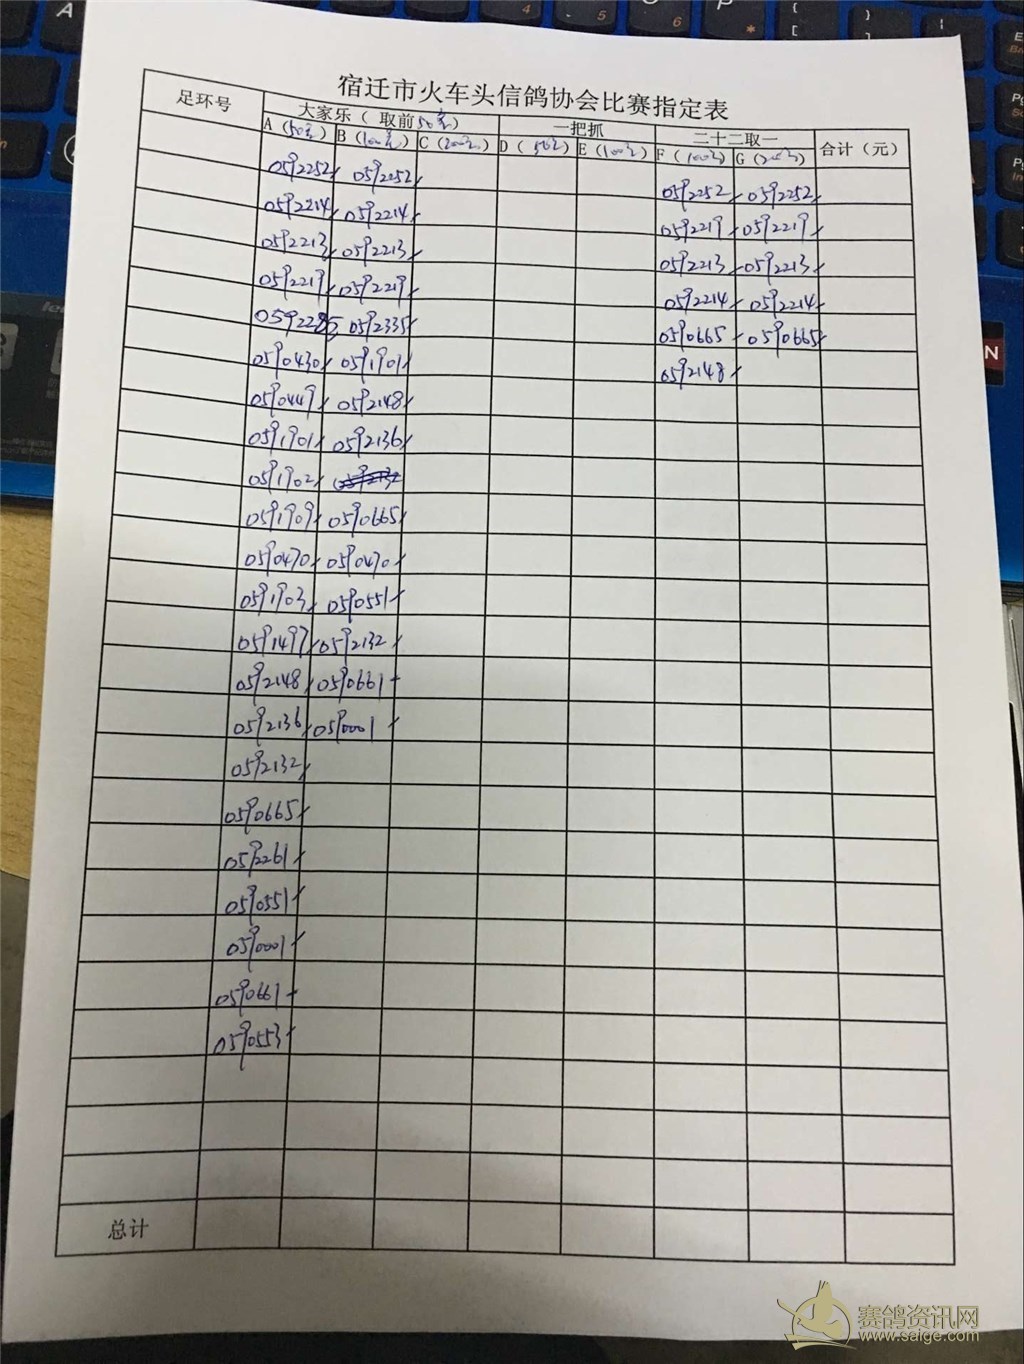 宿迁市火车头信鸽协会比赛指定表
足环号 大家乐（取前50名） 一把抓 二十二取一 合计（元）
A（50元） B（100元） C（200元） D（50元） E（100元） F（100元） G（200元）
0592252 0592252 0592252 0592252
0592214 0592214 0592219 0592219
0592213 0592213 0592213 0592213
0592219 0592219 0592214 0592214
0592335 0590665 0590665
0590430 0591901 0592148
0590449 0592148
0591901 0592136
0591902
0591909 0590665
0590470 0590470
0591903 0590551
0591497 0592132
0592148 0590661
0592136 0590001
0592132
0590665
0592261
0590551
0590001
0590661
0590553
总计
赛鸽资讯网
www.saige.com